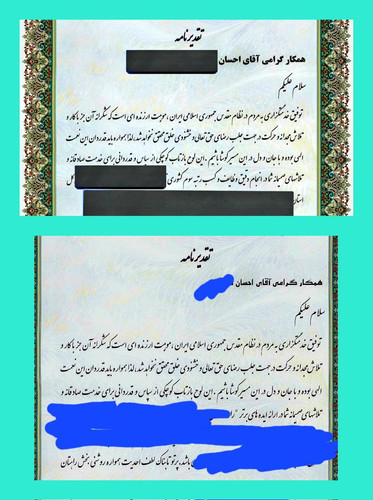 تقدیرنامه
همکار گرامی آقای احسان
سلام علیکم
توفیق خدمتگزاری به مردم در نظام مقدس جمهوری اسلامی ایران، موهبت ارزنده ای است که شکرانه آن جز با کار و
تلاش مجدانه و حرکت در جهت جلب رضای حق تعالی و خشنودی خلق محقق نخواهد شد، لذا همواره باید قدردان این نعمت
الهی بوده و با جان و دل در این مسیر کوشا باشیم. این لوح بازتاب کوچکی از سپاس و قدردانی برای خدمت صادقانه و
تلاشهای صمیمانه شما در انجام دقیق وظایف و کسب رتبه سوم کشوری
کل
استان
تقدیرنامه
همکار گرامی آقای احسان
سلام علیکم
توفیق خدمتگزاری به مردم در نظام مقدس جمهوری اسلامی ایران، موهبت ارزنده ای است که شکرانه آن جز با کار و
تلاش مجدانه و حرکت در جهت جلب رضای حق تعالی و خشنودی خلق محقق نخواهد شد، لذا همواره باید قدردان این نعمت
الهی بوده و با جان و دل در این مسیر کوشا باشیم. این لوح بازتاب کوچکی از سپاس و قدردانی برای خدمت صادقانه و
تلاشهای صمیمانه شما در ارائه ایده های برتر
باشد. پرتو تابناک لطف احدیت همواره روشنی بخش راهتان